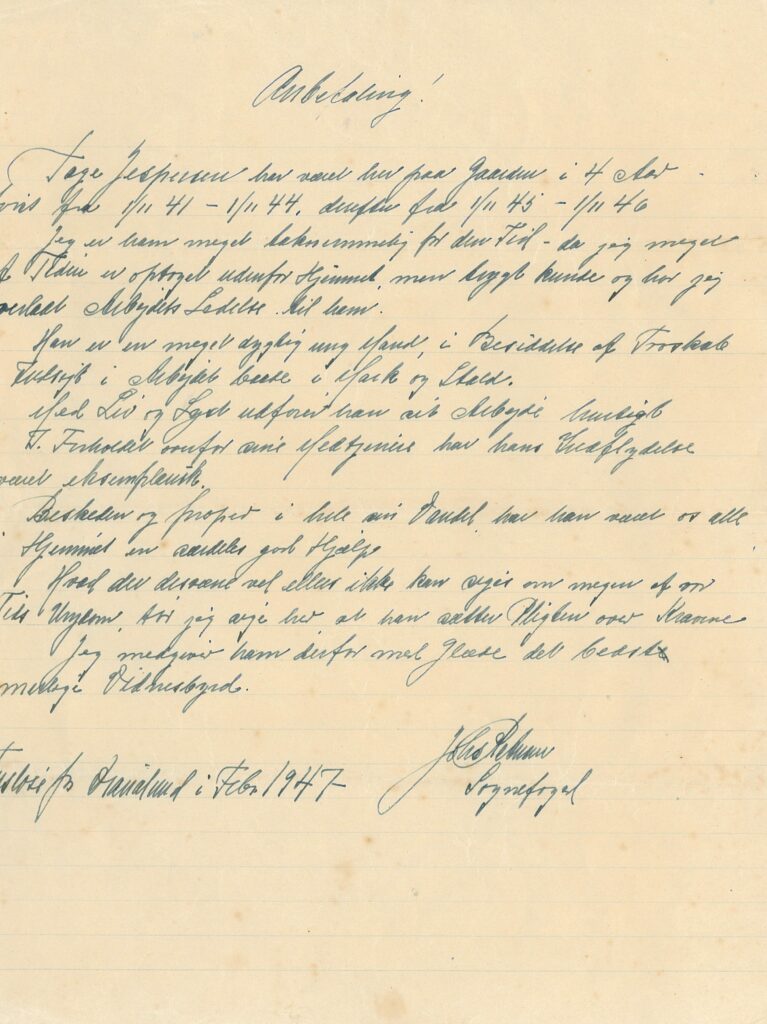 Anbefaling!
Tage Jespersen har været her paa Gaarden i 4 Aar
fra 1/11 41 – 1/11 44, derefter fra 1/11 45 – 1/11 46
Jeg er ham meget taknemmelig for den Tid – da jeg meget
af Tiden er optaget udenfor Hjemmet, men trygt kunde og har jeg
overladt Arbejdets Ledelse til ham.
Han er en meget dygtig ung Mand, i Besiddelse af Troskab
Indsigt i Arbejdet baade i Mark og Stald.
Med Liv og Lyst udfører han sit Arbejde hurtigt
I Forholdet overfor sine Medtjenere har hans Indflydelse
været eksemplarisk.
Beskeden og proper i hele sin Vandel, har han været os alle
Hjemmet en særdeles god Hjælp
Hvad der desværre vel ellers ikke kan siges om megen af vor
Tids Ungdom, tør jeg sige her at han sætter Pligten over Kravene
Jeg medgiver ham derfor med Glæde det bedste
Vidnesbyrd.
pr Dianalund i Febr 1947
Sognefoged